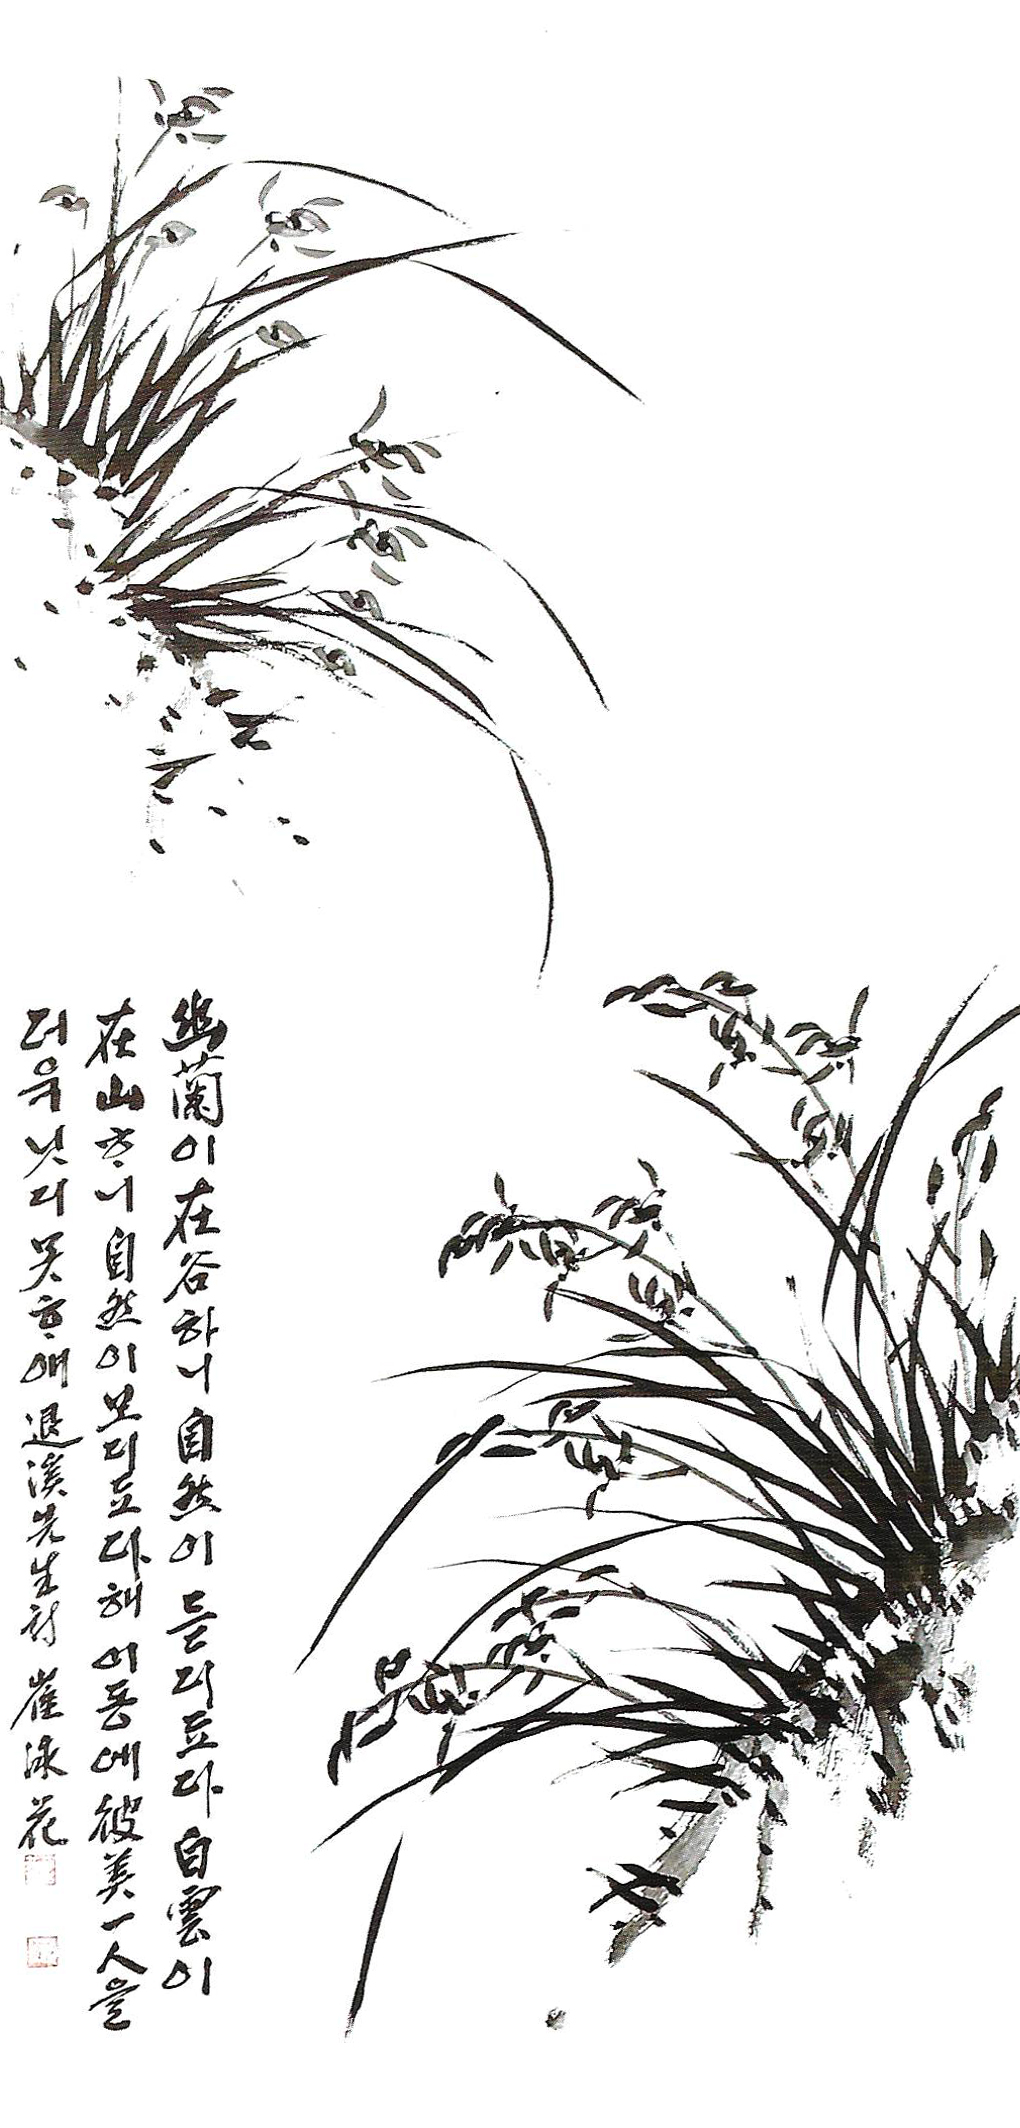 幽蘭이 在谷하니 自然이 듣디됴다 白雲이
在山ᄒᆞ니 自然이 보디됴다해 이듕에 彼美一人을
더욱 닛디 못ᄒᆞ얘 退溪先生詩 崔泳花